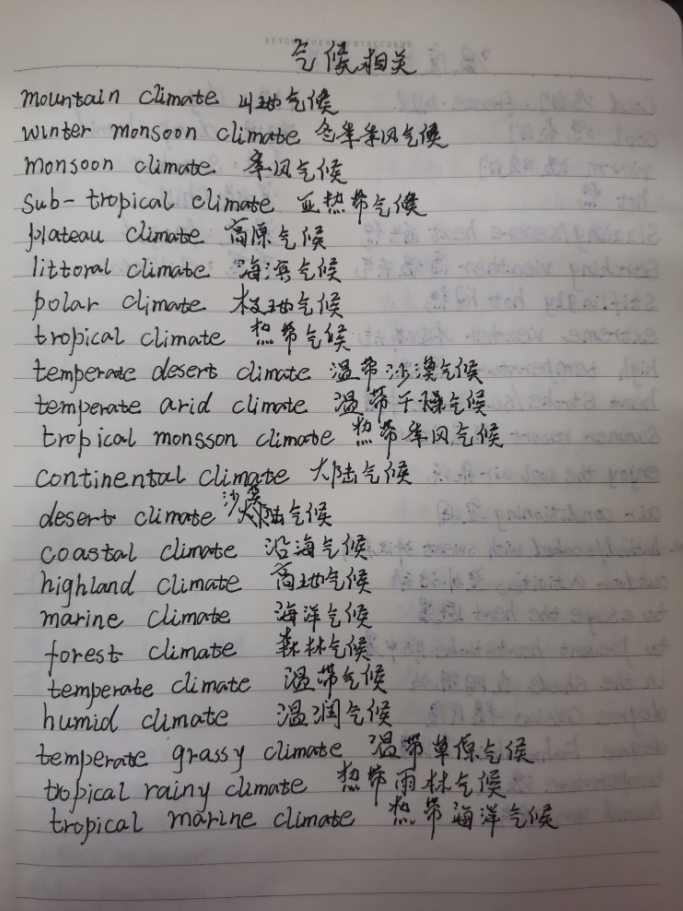 气候相关
mountain climate 山地气候
winter monsoon climate 冬季季风气候
monsoon climate 季风气候
sub-tropical climate 亚热带气候
plateau climate 高原气候
littoral climate 海滨气候
polar climate 极地气候
tropical climate 热带气候
temperate desert climate 温带沙漠气候
temperate arid climate 温带干燥气候
tropical monsson climate 热带季风气候
continental climate 大陆气候
desert climate 沙漠气候
coastal climate 沿海气候
highland climate 高地气候
marine climate 海洋气候
forest climate 森林气候
temperate climate 温带气候
humid climate 温润气候
temperate grassy climate 温带草原气候
tropical rainy climate 热带雨林气候
tropical marine climate 热带海洋气候